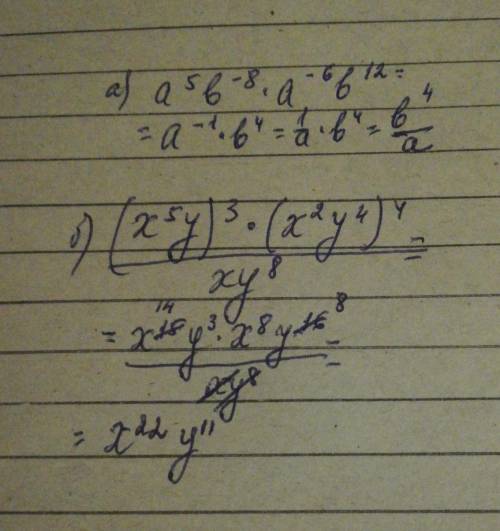 а) a⁵b⁻⁸·a⁻⁶b¹²=
=a⁻¹·b⁴=1/a·b⁴=b⁴/a
б) (x⁵y)³·(x²y⁴)⁴/xy⁸=
=x¹⁵ ¹⁴y³·x⁸y¹⁶ ⁸/xy⁸=
=x²²y¹¹